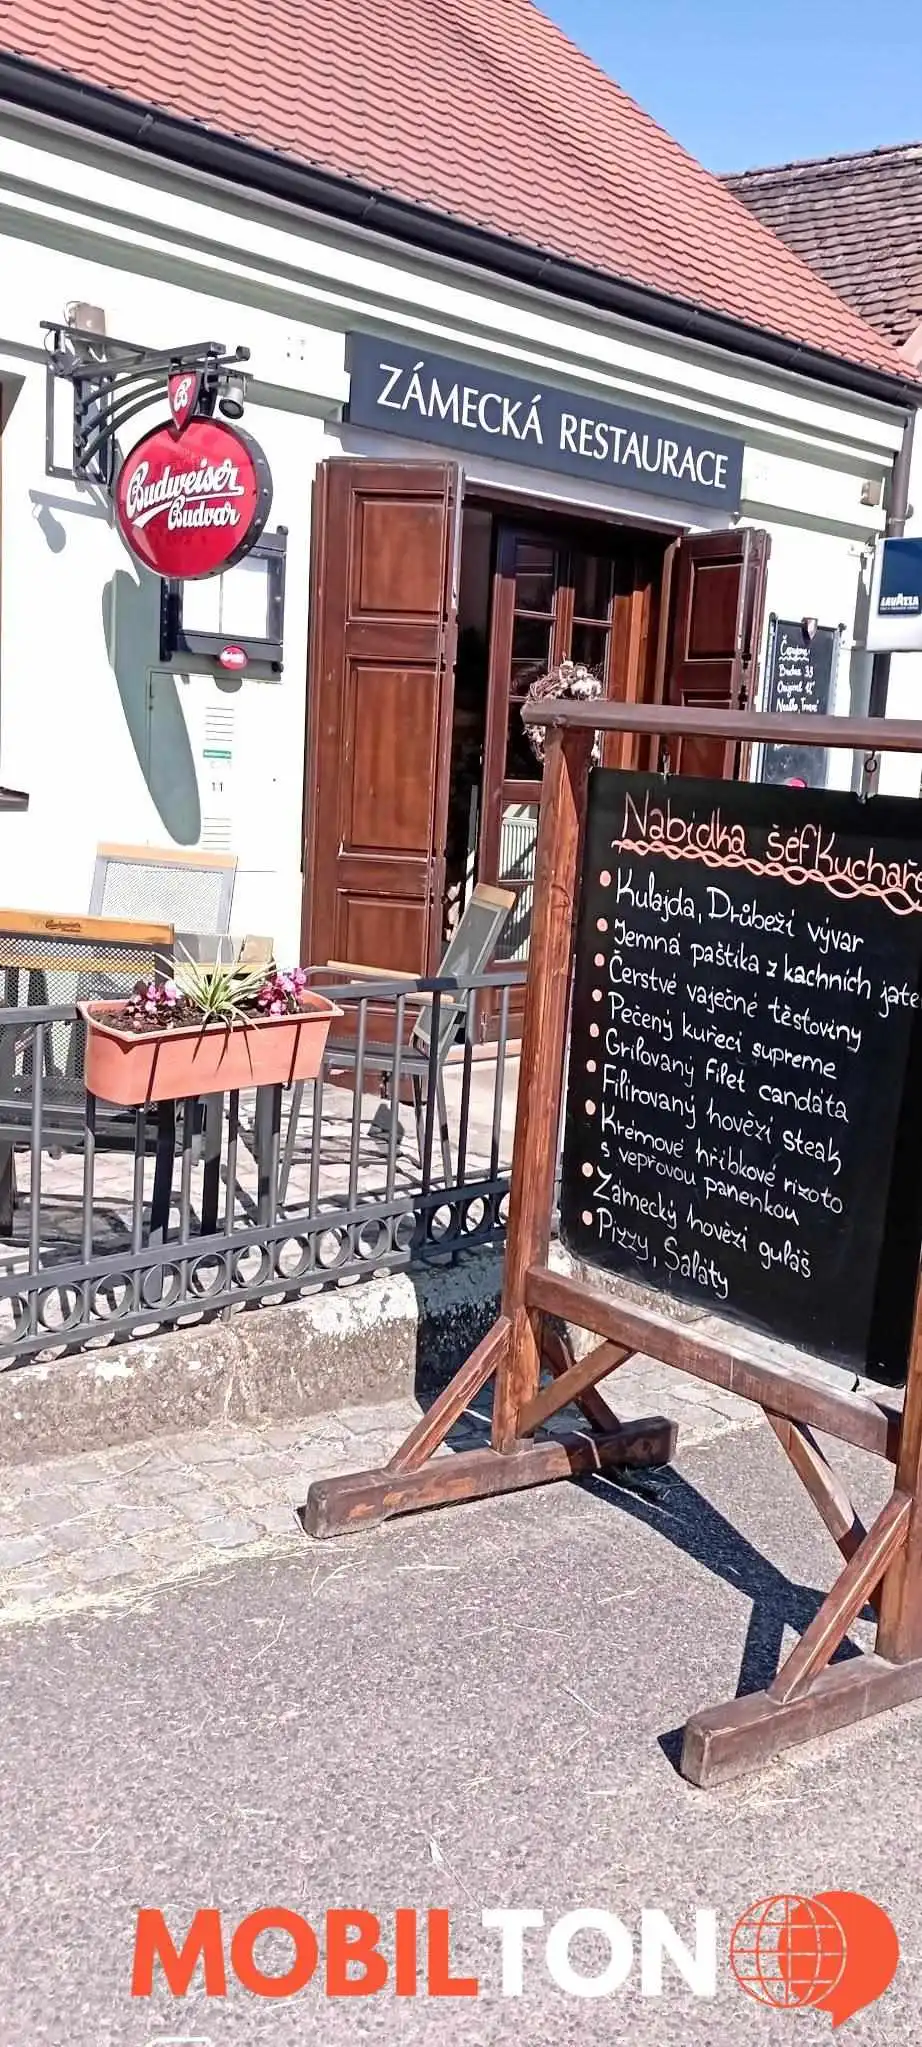 ZÁMECKÁ RESTAURACE
B
Budweiser
Budvar
LAVAZZA
11
Budvar 33
Nabídka šéfkuchaře
Kulajda, Drůbeží vývar
Jemná paštika z kachních jate
Čerstvé vaječné těstoviny
Pečený kuřecí supreme
Grilovaný filet candáta
Filírovaný hovězí steak
Krémové hříbkové rizoto
s vepřovou panenkou
Zámecký hovězí guláš
Pizzy, Saláty
MOBILTON